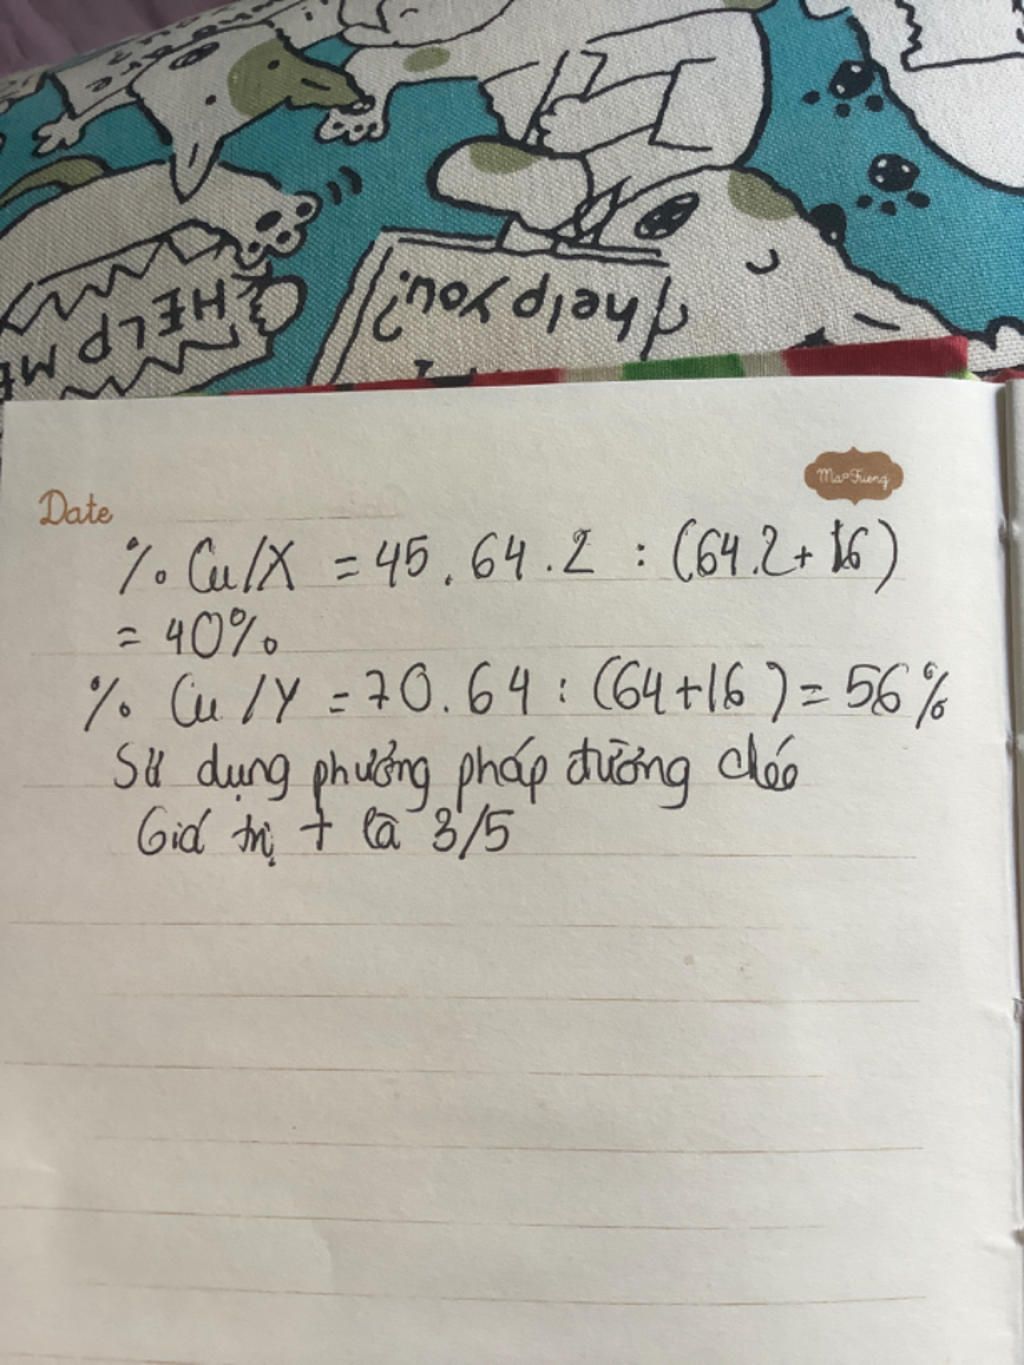 HELP ME
I help you?
Date
% Cu/X = 45.64.2 : (64.2+16)
= 40%
% Cu/Y = 70.64 : (64+16) = 56%
Sử dụng phương pháp đường chéo
Giá trị t là 3/5